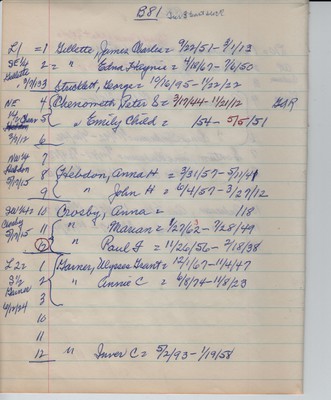 B81
L1 = 1 Gillette, James Charles = 9/22/51 - 3/1/13
SE 1/4 = 2 " Edna = 4/18/67 - 7/6/50
Gillette
3 Stricklett, George = 10/16/95 - 1/22/22
NE 4 Chenometh Peter S = 3/17/44 - 1/21/12 GAR
5 " Emily Child = 154 - 5/5/51
3/9/12 6
NW 1/4 7
Hebdon 8 Hebdon, Anna H = 3/31/57 - 5/11/41
5/17/15 9 " John H = 6/4/57 - 3/27/12
SW 1/4 = 10 Crosby, Anna = 118
Crosby 11 " Marian = 8/27/62 - 7/28/49
5/17/15 12 " Paul F = 11/26/56 - 2/18/38
L2 = 1 Garner, Ulysses Grant = 12/1/67 - 11/4/47
S 1/2 2 " Annie C = 6/8/74 - 11/8/23
Garner 3
4/17/24
10
11
12 " Inver C = 5/2/93 - 1/19/58